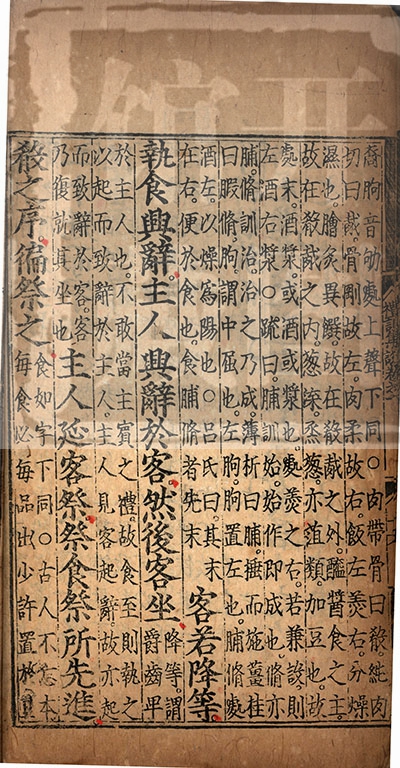 裔朐音劬處上聲下同○肉帶骨曰殽純肉
切曰胾骨剛故左肉柔故右飯左羹右分燥
濕也膾炙異饌故在殽胾之外醯醬食之主
故在殽胾之内葱渫烝葱亦菹類加豆也故
處末酒漿或酒或漿也處羹之右若兼設則
左酒右漿○疏曰脯訓始始作即成也脩亦
脯脩訓治治之乃成薄析曰脯捶而施薑桂
曰腶脩朐謂中屈也左朐朐置左也脯脩處
酒左以燥爲陽也○呂氏曰其末
在右便於食也食脯脩者先末
客若降等
執食興辭主人興辭於客然後客坐
降等謂
爵齒卑
於主人也不敢當主賓之禮故食至則執之
以起而致辭於主人主人見客起辭故亦起
而致辭於客客
乃復就其坐也
主人延客祭祭食祭所先進
殽之序徧祭之
食如字下同○古人不忘本
每食必每品出少許置於豆